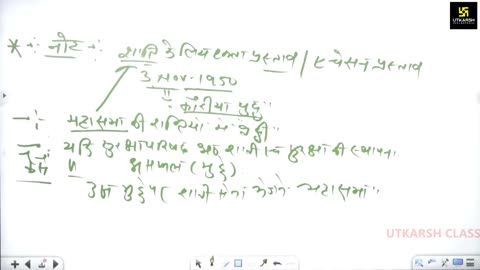 UTKARSH
CLASSES
* नोट
शान्ति के लिये एकता प्रस्ताव / एचेसन प्रस्ताव
3 Nov. 1950
कोरीया युद्ध
महासभा की शक्तियों में वृद्धि
यदि सुरक्षा परिषद शान्ति सुरक्षा की स्थापना
में असफल (मुद्दे)
उस मुद्दे पर शान्ति सेना भेजेगी महासभा
UTKARSH CLASS